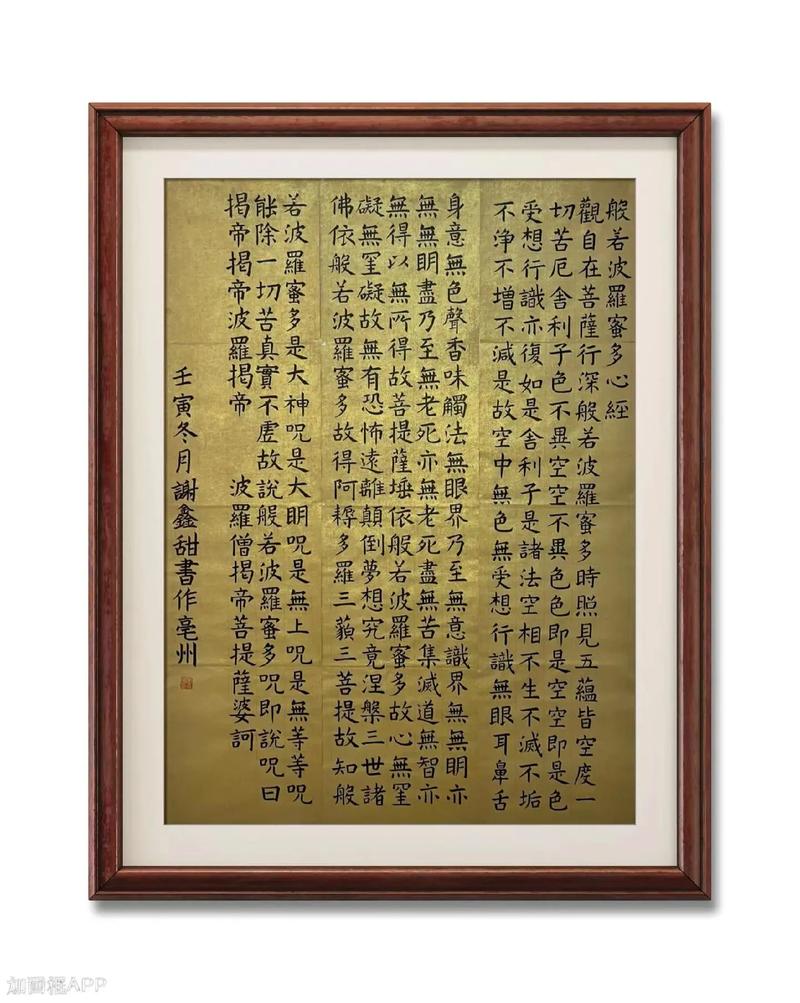 般若波羅蜜多心經
觀自在菩薩行深般若波羅蜜多時照見五蘊皆空度一
切苦厄舍利子色不異空空不異色色即是空空即是色
受想行識亦復如是舍利子是諸法空相不生不滅不垢
不淨不增不減是故空中無色無受想行識無眼耳鼻舌
身意無色聲香味觸法無眼界乃至無意識界無無眀亦
無無眀盡乃至無老死亦無老死盡無苦集滅道無智亦
無得以無所得故菩提薩埵依般若波羅蜜多故心無罣
礙無罣礙故無有恐怖遠離顛倒夢想究竟涅槃三世諸
佛依般若波羅蜜多故得阿耨多羅三藐三菩提故知般
若波羅蜜多是大神呪是大眀呪是無上呪是無等等呪
能除一切苦真實不虛故說般若波羅蜜多呪即說呪曰
揭帝揭帝波羅揭帝 波羅僧揭帝菩提薩婆訶
壬寅冬月謝鑫甜書作亳州
加画框APP